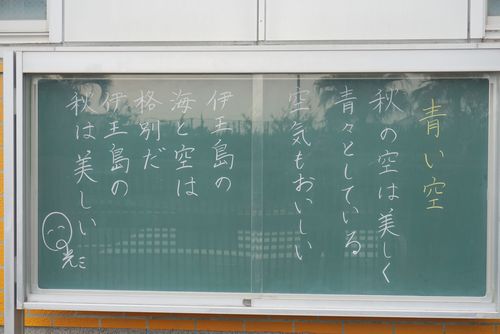 青い空
秋の空は美しく
青々としている
空気もおいしい
伊王島の
海と空は
格別だ
伊王島の
秋は美しい